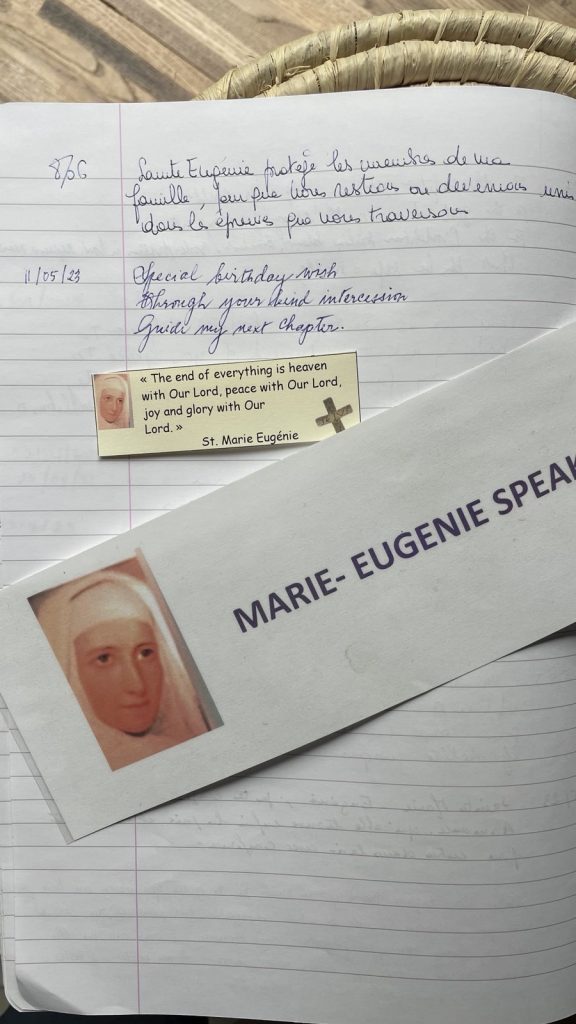 8/06 Sainte Eugénie protège les membres de ma
famille, pour que nous restions ou devenions unis
dans les épreuves que nous traversons
11/05/23 Special birthday wish
Through your kind intercession
Guide my next chapter.
« The end of everything is heaven
with Our Lord, peace with Our Lord,
joy and glory with Our
Lord. »
St. Marie Eugénie
MARIE- EUGENIE SPEAK